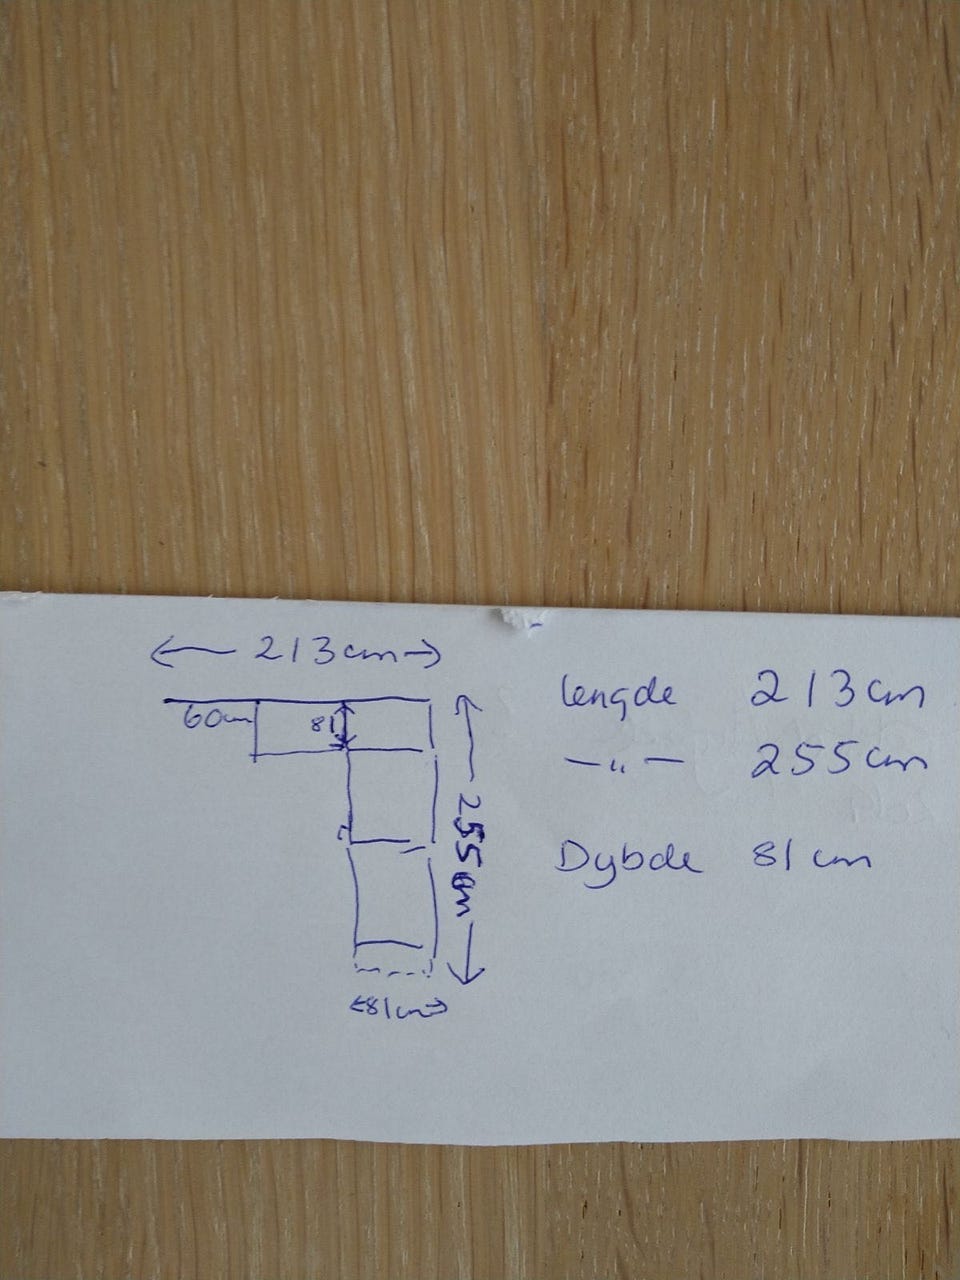 213 cm
60cm
81
255 cm
81cm
lengde 213 cm
—〃— 255 cm
Dybde 81 cm